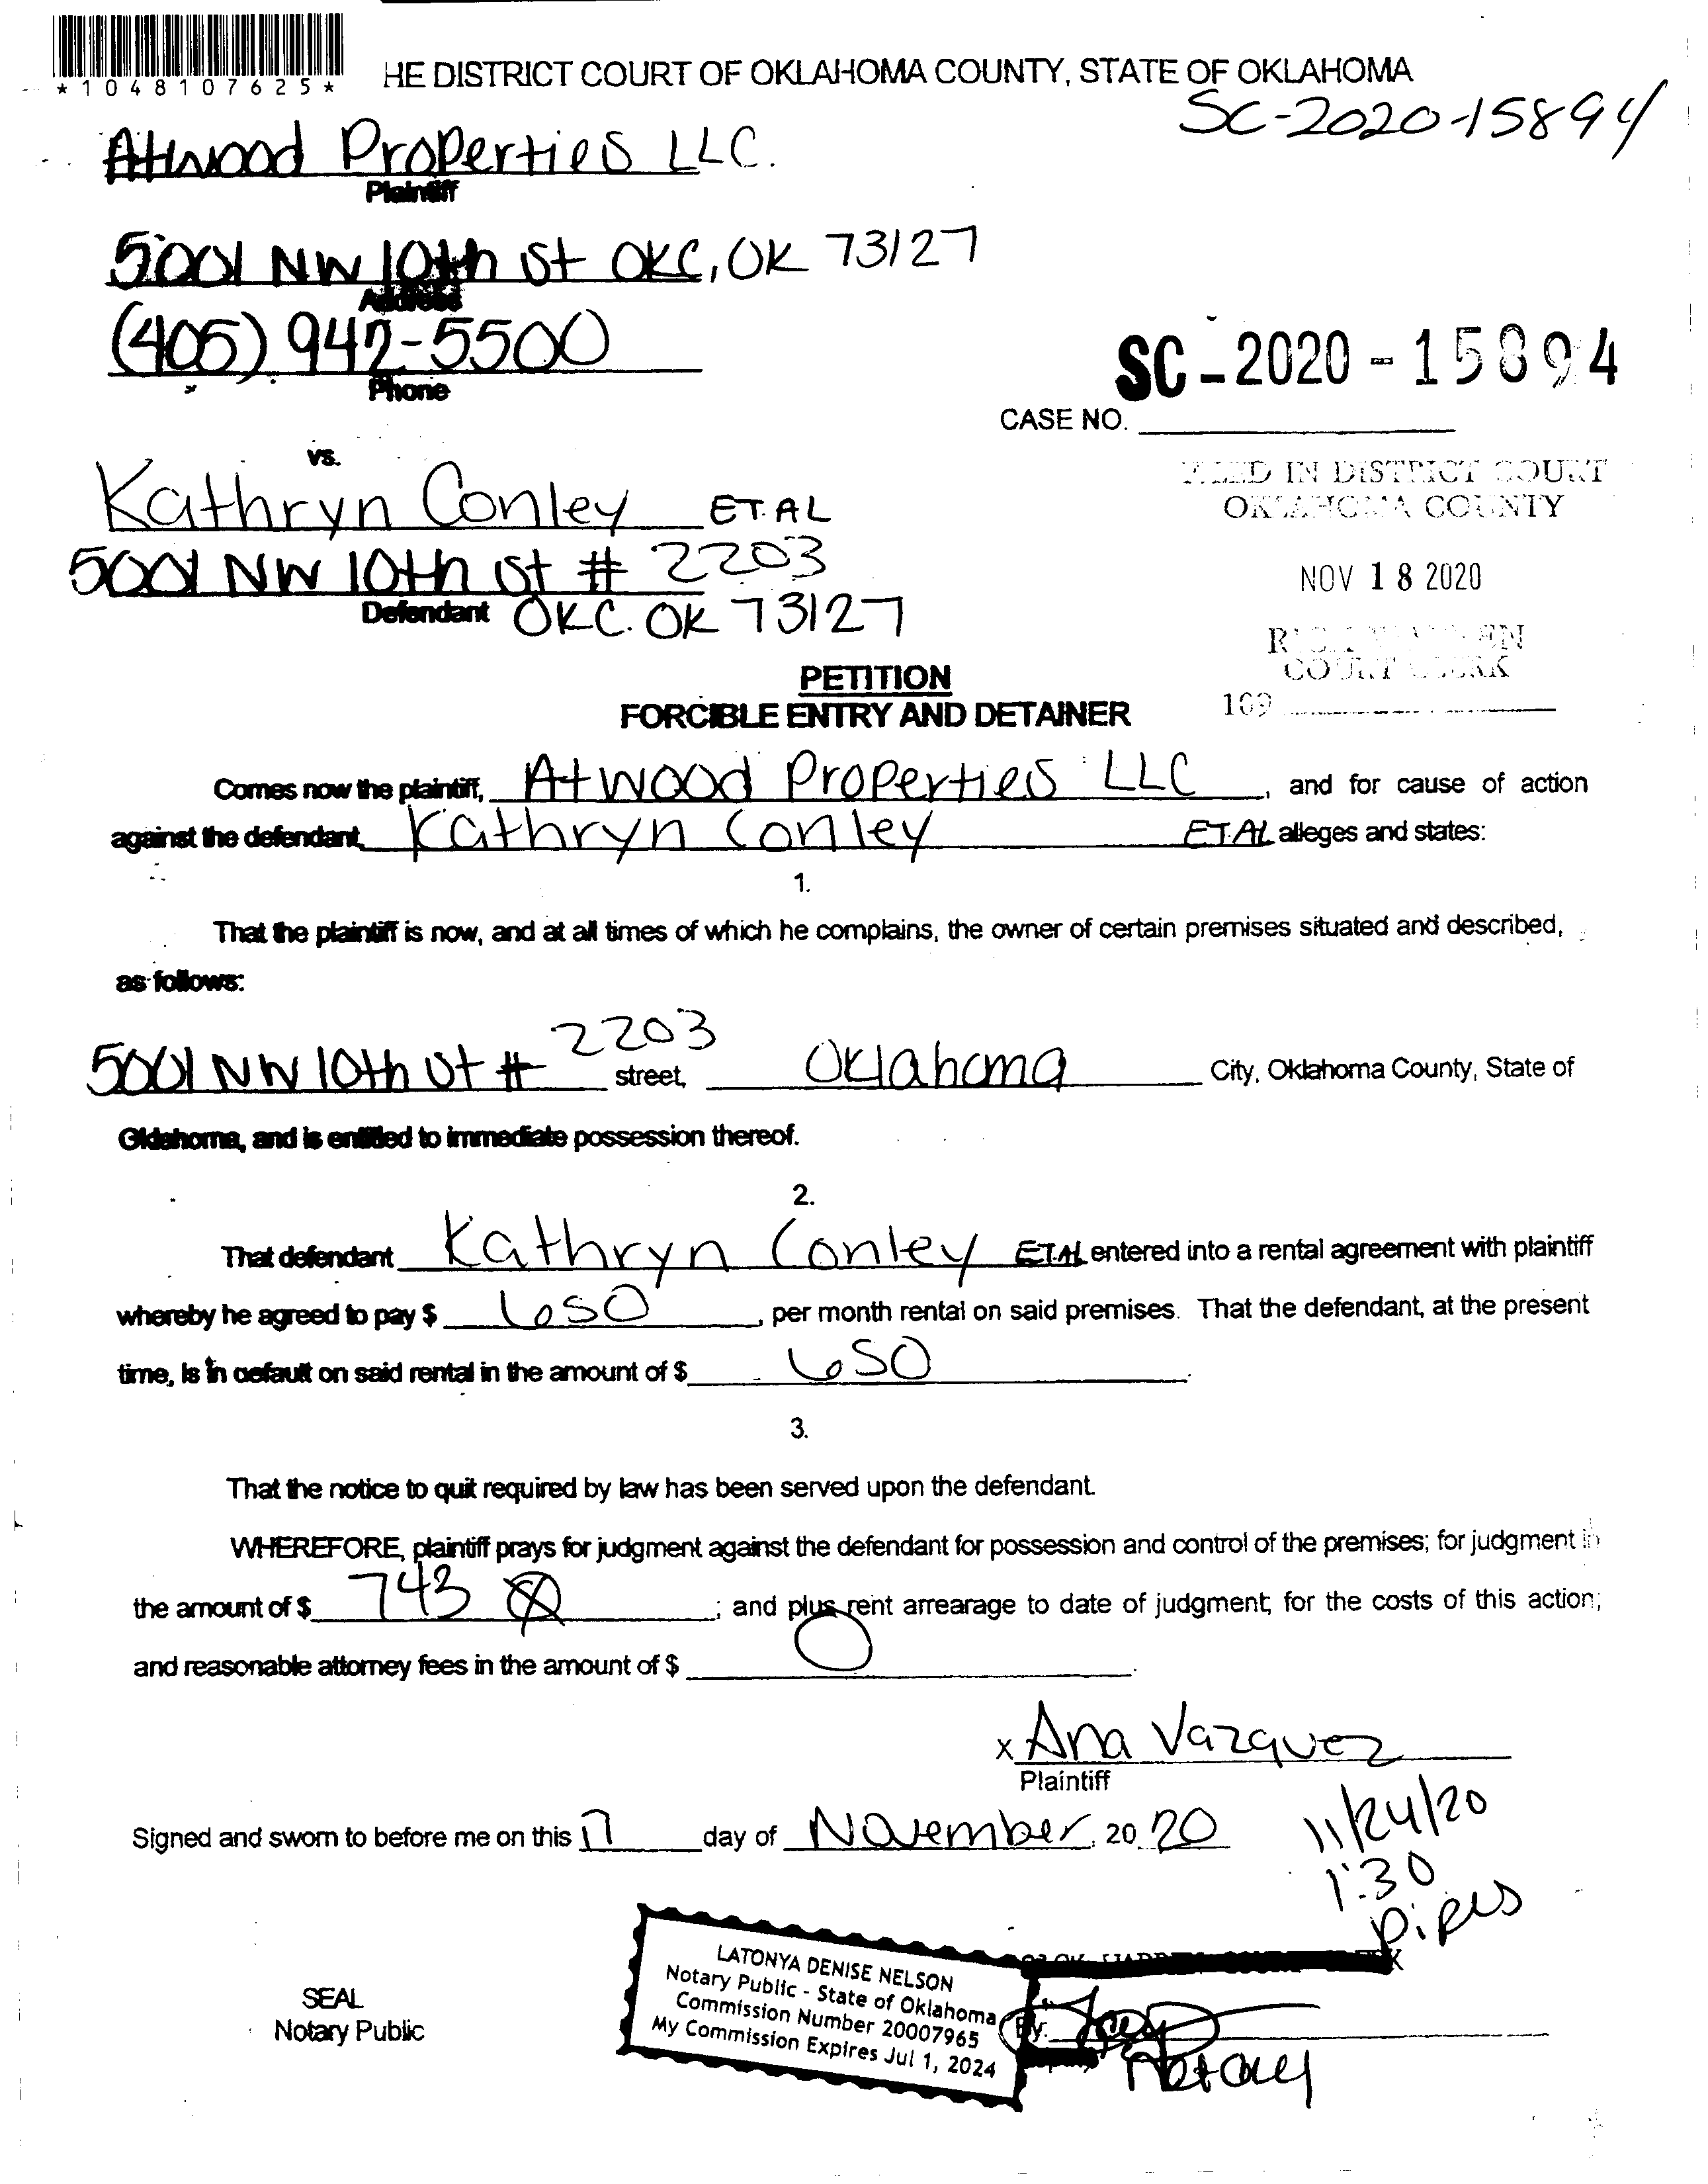 *1048107625*
HE DISTRICT COURT OF OKLAHOMA COUNTY, STATE OF OKLAHOMA
SC-2020-15894
Atwood Properties LLC.
Plaintiff
5001 NW 10th St OKC, OK 73127
Address
(405) 942-5500
Phone
SC-2020-15894
CASE NO.
vs.
Kathryn Conley ET.AL
5001 NW 10th St # 2203
Defendant OKC. OK 73127
FILED IN DISTRICT COURT
OKLAHOMA COUNTY
NOV 18 2020
COURT CLERK
109
PETITION
FORCIBLE ENTRY AND DETAINER
Comes now the plaintiff, Atwood Properties LLC, and for cause of action
against the defendant, Kathryn Conley ET.AL alleges and states:
1.
That the plaintiff is now, and at all times of which he complains, the owner of certain premises situated and described,
as follows:
5001 NW 10th St # 2203 street, Oklahoma City, Oklahoma County, State of
Oklahoma, and is entitled to immediate possession thereof.
2.
That defendant Kathryn Conley ET.AL entered into a rental agreement with plaintiff
whereby he agreed to pay $ 650, per month rental on said premises. That the defendant, at the present
time, is in default on said rental in the amount of $ 650.
3.
That the notice to quit required by law has been served upon the defendant.
WHEREFORE, plaintiff prays for judgment against the defendant for possession and control of the premises; for judgment in
the amount of $ 743; and plus rent arrearage to date of judgment; for the costs of this action;
and reasonable attorney fees in the amount of $ 0.
x Ana Vazquez
Plaintiff
Signed and sworn to before me on this 17 day of November, 20 20
11/24/20
1:30
Pipes
SEAL
Notary Public
LATONYA DENISE NELSON
Notary Public - State of Oklahoma
Commission Number 20007965
My Commission Expires Jul 1, 2024
By:
Notary